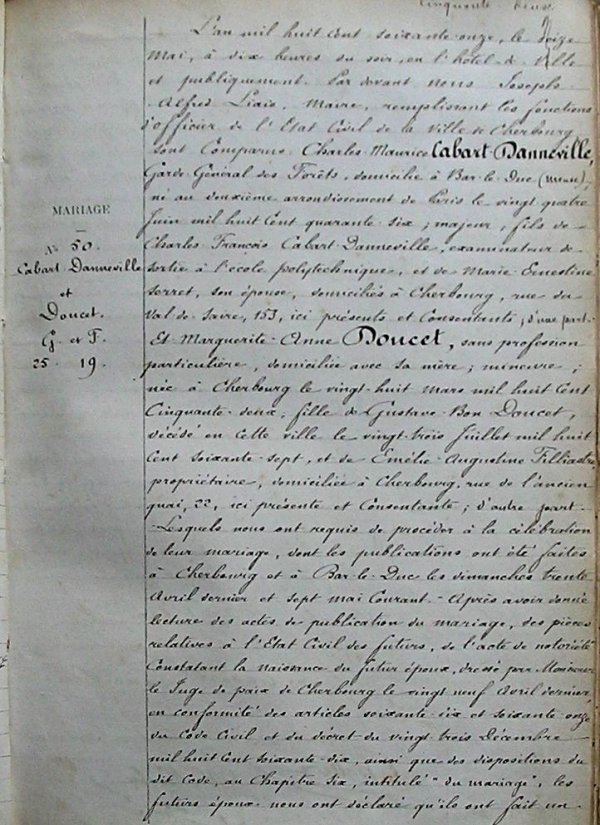 Cinquante deux
L'an mil huit cent soixante-onze, le seize
Mai, à dix heures du soir, en l'hôtel de Ville
et publiquement. Par devant nous Joseph
Alfred Liais, Maire, remplissant les fonctions
d'officier de l'Etat Civil de la Ville de Cherbourg
sont Comparus Charles-Maurice Cabart Danneville,
Garde Général des Forêts, domicilié à Bar-le-Duc (Meuse),
né au deuxième arrondissement de Paris le vingt quatre
Juin mil huit Cent quarante-six; majeur, fils de
Charles François Cabart-Danneville, examinateur de
sortie à l'école polytechnique, et de Marie Ernestine
Serret, son épouse, domiciliés à Cherbourg, rue du
Val-de-Saire, 153, ici présents et Consentants; d'une part-
Et Marguerite-Anne Doucet, sans profession
particulière, domiciliée avec sa mère; mineure;
née à Cherbourg le vingt-huit Mars mil huit Cent
Cinquante-deux; fille de Gustave-Bon Doucet,
décédé en cette ville le vingt-trois Juillet mil huit
Cent soixante-sept, et de Emélie-Augustine Filliastre
propriétaire, domiciliée à Cherbourg, rue de l'ancien
quai, 22, ici présente et Consentante; d'autre part-
Lesquels nous ont requis de procéder à la célébration
de leur mariage, dont les publications ont été faites
à Cherbourg et à Bar-le-Duc les dimanches trente
Avril dernier et sept Mai Courant.- Après avoir donné
lecture des actes de publication du mariage, des pièces
relatives à l'Etat Civil des futurs, de l'acte de notoriété
Constatant la naissance du futur époux, dressé par Monsieur
le Juge de paix de Cherbourg le vingt neuf Avril dernier,
en conformité des articles soixante-dix et soixante-onze
du Code Civil et du décret du vingt-trois Décembre
mil huit Cent soixante-dix, ainsi que des dispositions du
dit Code, au Chapitre Six, intitulé "du mariage", les
futurs époux nous ont déclaré qu'ils ont fait un
MARIAGE
N° 50.
Cabart Danneville
et
Doucet.
G. et F.
25. 19.